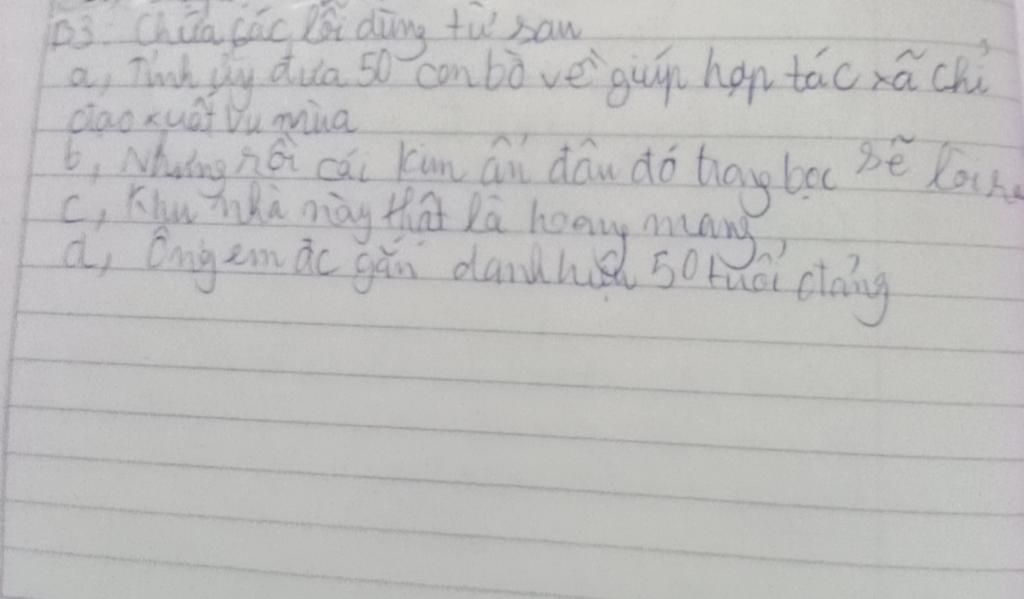 B3. Chữa các lỗi dùng từ sau
a, Tỉnh ủy đưa 50 con bò về giúp hợp tác xã chỉ
đạo xuất vụ mùa
b, Nhưng rồi cái kim ẩn dấu đó trong bọc sẽ lòi
c, Khu nhà này thật là hoang mang
d, Ông em đc gắn danh hiệu 50 tuổi đảng